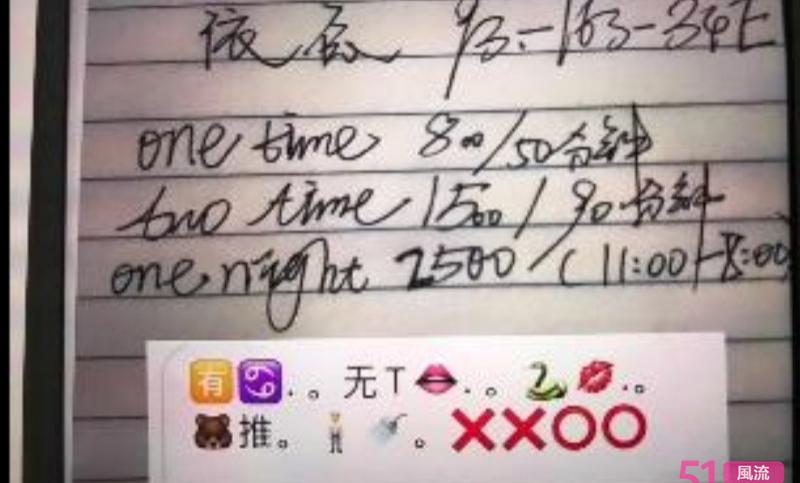 93-163-34E
one time 800/50分钟
two time 1500/90分钟
one night 2500/(11:00-8:00)
🈶♋.。无T👄.。🐍💋.。
🐻推。🧍🚿。❌❌⭕⭕
51風流